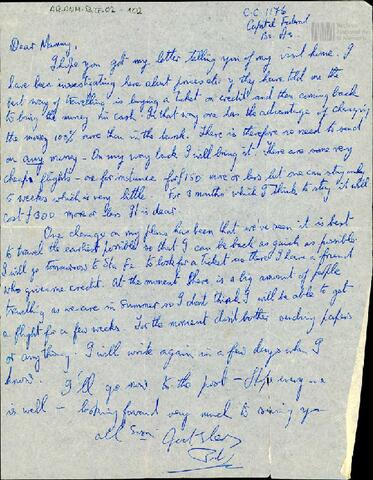 AR-ANM-B-TF-02 - 102
C.C 1176
Capital Federal
Bs. As.
Dear Mammy,
I hope you got my letter telling you of my visit home. I
have been investigating here about prices etc & they have told me the
best way of travelling is buying a ticket on credit and then coming back
to bring the money in cash. In that way one has the advantage of changing
the money 100% more than in the bank. There is therefore no need to send
on any money. On my way back I will bring it. There are some very
cheap flights - one for instance for £150 more or less but one can stay only
5 weeks which is very little. For 3 months which I think to stay it will
cost £300 more or less. It is dear.
One change on my plans has been that we've seen it is best
to travel the earliest possible so that I can be back as quick as possible.
I will go tomorrow to Sta. Fe to look for a ticket as there I have a friend
who gives me credit. At the moment there is a big amount of people
travelling as we are in summer so I don't think I will be able to get
a flight for a few weeks. For the moment don't bother sending papers
or anything. I will write again in a few days when I
know.
I'll go now to the post - Hope everyone
is well - looking forward very much to seeing you
all soon